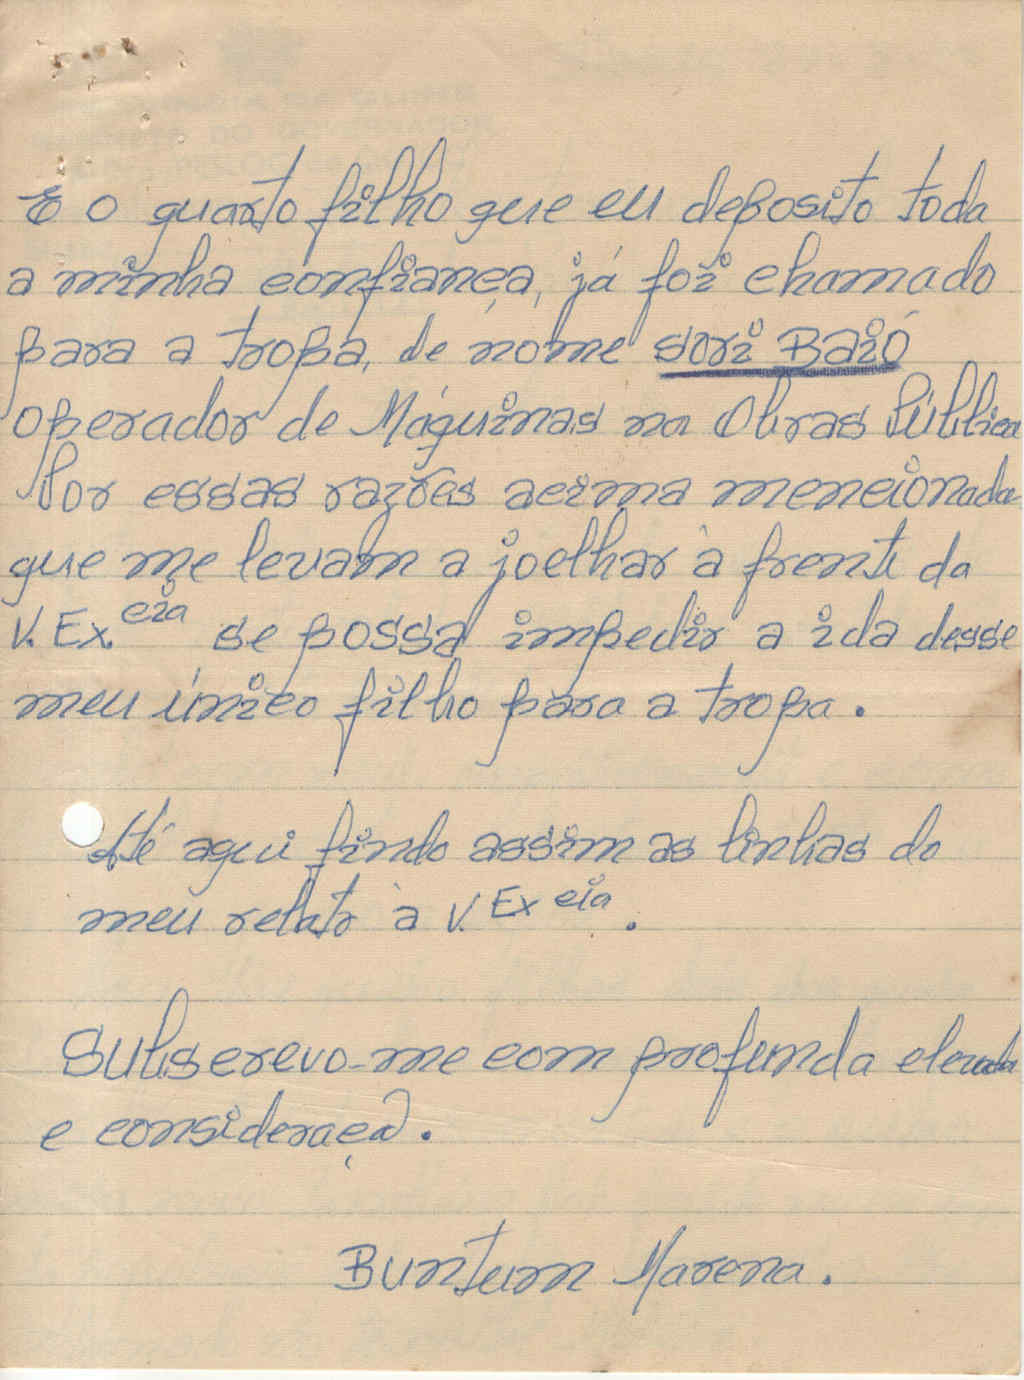 E o quarto filho que eu deposito toda
a minha confiança, já foi chamado
para a tropa, de nome Sori Baió
operador de Máquinas na Obras Pública
Por essas razões acima mencionada
que me levam a joelhar à frente da
V. Ex.cia se possa impedir a ida desse
meu único filho para a tropa.
Até aqui findo assim as linhas do
meu relato à V. Ex cia.
Subscrevo-me com profunda elevada
e consideraçã.
Buntum Marena.